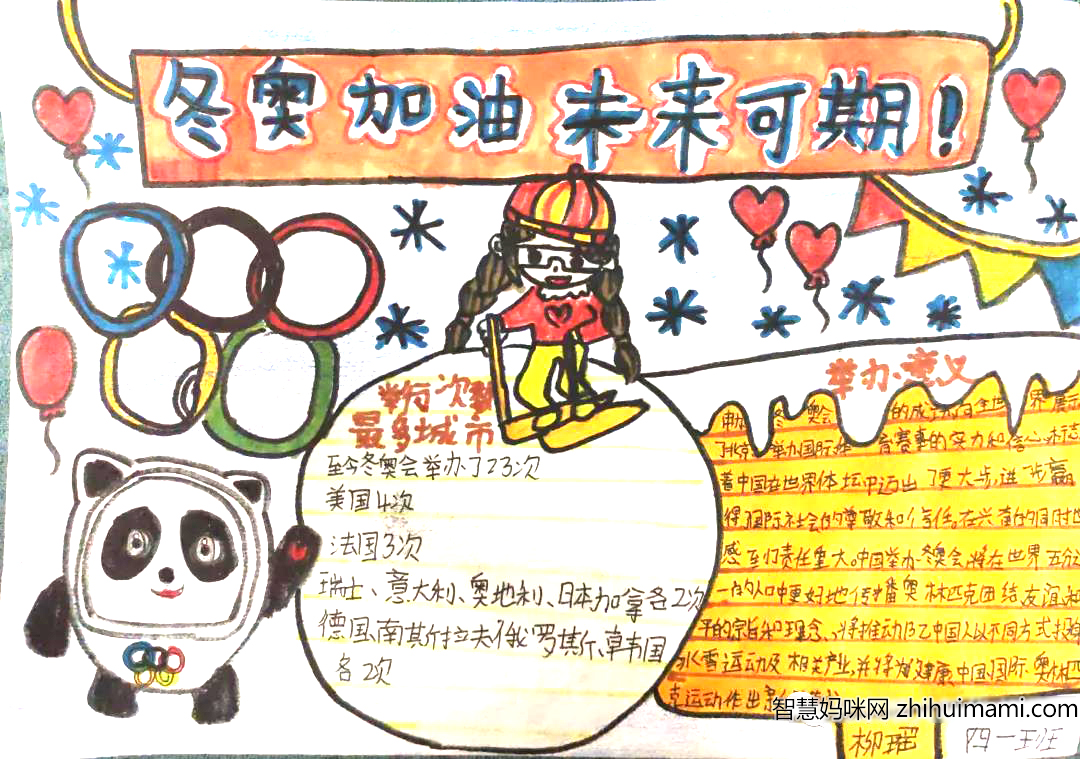 冬奥加油未来可期!
举行次数
最多城市
至今冬奥会举办了23次
美国4次
法国3次
瑞士、意大利、奥地利、日本加拿各2次
德国、南斯拉夫、俄罗斯、韩国
各2次
举办意义
冬奥会的成功向全世界展示
了北京举办国际体育赛事的实力和信心,标志
着中国在世界体坛中迈出了更大步,进一步赢
得国际社会的尊敬和信任。在兴奋的同时也
感到责任重大。中国举办冬奥会将在世界五分之
一的人口中更好地传播奥林匹克团结、友谊、和
平的宗旨和理念、将推动13亿中国人以不同方式
冰雪运动及相关产业,并将为健康中国国际奥林匹
克运动作出
智慧妈咪网 zhihuimami.com
柳瑶 四一班